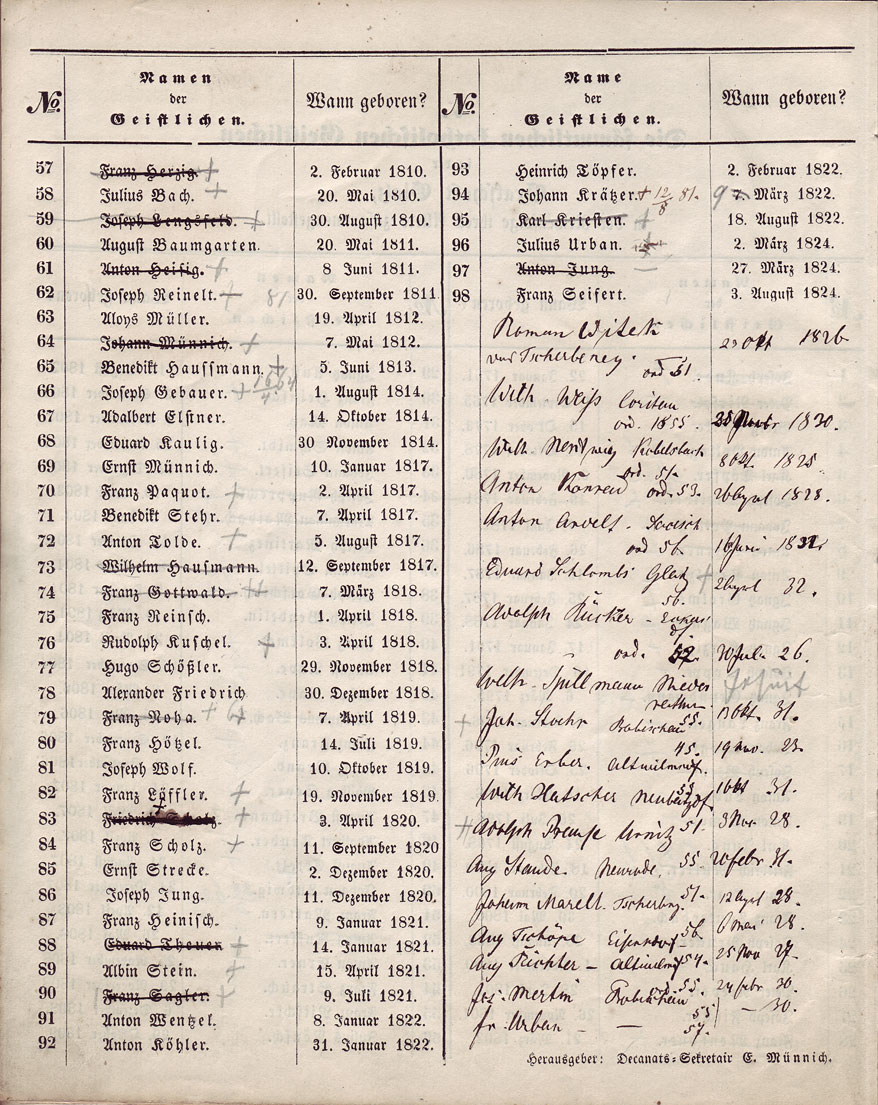 No.
Namen
der
Geistlichen.
Wann geboren?
57 Franz Herzig. + 2. Februar 1810.
58 Julius Bach. + 20. Mai 1810.
59 Joseph Lengsfeld. + 30. August 1810.
60 August Baumgarten. 20. Mai 1811.
61 Anton Heisig. + 8 Juni 1811.
62 Joseph Reinelt. + 81 30. September 1811
63 Aloys Müller. 19. April 1812.
64 Johann Münnich. + 7. Mai 1812.
65 Benedikt Hauffmann. + 5. Juni 1813.
66 Joseph Gebauer. + 1. August 1814.
67 Adalbert Elstner. 14. Oktober 1814.
68 Eduard Kaulig. 30 November 1814.
69 Ernst Münnich. 10. Januar 1817.
70 Franz Paquot. + 2. April 1817.
71 Benedikt Stehr. 7. April 1817.
72 Anton Tolde. + 5. August 1817.
73 Wilhelm Hausmann. 12. September 1817.
74 Franz Gottwald. + 7. März 1818.
75 Franz Reinsch. 1. April 1818.
76 Rudolph Kuschel. + 3. April 1818.
77 Hugo Schößler. 29. November 1818.
78 Alexander Friedrich 30. Dezember 1818.
79 Franz Noha. + 7. April 1819.
80 Franz Hötzel. 14. Juli 1819.
81 Joseph Wolf. 10. Oktober 1819.
82 Franz Löffler. + 19. November 1819.
83 Friedrich Scholz. + 3. April 1820.
84 Franz Scholz. + 11. September 1820
85 Ernst Strecke. 2. Dezember 1820.
86 Joseph Jung. 11. Dezember 1820.
87 Franz Heinisch. 9. Januar 1821.
88 Eduard Theuer + 14. Januar 1821.
89 Albin Stein. + 15. April 1821.
90 Franz Sagler. + 9. Juli 1821.
91 Anton Wentzel. 8. Januar 1822.
92 Anton Köhler. 31. Januar 1822.
No.
Name
der
Geistlichen.
Wann geboren?
93 Heinrich Töpfer. 2. Februar 1822.
94 Johann Krätzer. + 12/8 81. 9 7. März 1822.
95 Karl Kriesten. + 18. August 1822.
96 Julius Urban. + 2. März 1824.
97 Anton Jung. 27. März 1824.
98 Franz Seifert. 3. August 1824.
Roman Witek 23 Okt 1826
von Tscherbeney. ord 51
Wilh. Weiß
ord. 1855. 1830.
Wilh. Nentwig 8 Okt. 1825
ord. 51.
Anton Konrad ord. 53. 26 April 1828.
Anton
ord 56 16 Juni
Eduard Glatz + 2 April 32.
56.
Adolph Rücker
ord. 30 Juli 26.
Wilh. Spillmann Jesuit
+ Joh. 55. 13 Okt. 31.
Pius Erber. Altwilmsdf. 45. 19 Nov. 23.
Wilh Hatscher 31.
+ Adolph 51. 3 Nov. 28.
Aug Staude. Neurode. 55. 20 Febr 31.
51. 12 April 28.
Aug Tschöpe Eisersdorf 56 6 Mai 28.
Aug Richter – 54. 25 Nov 27.
Jos. Mertin 55. 24 Febr 30.
55
fr. Urban — 57. – 30.
Herausgeber: Decanats-Sekretair E. Münnich.